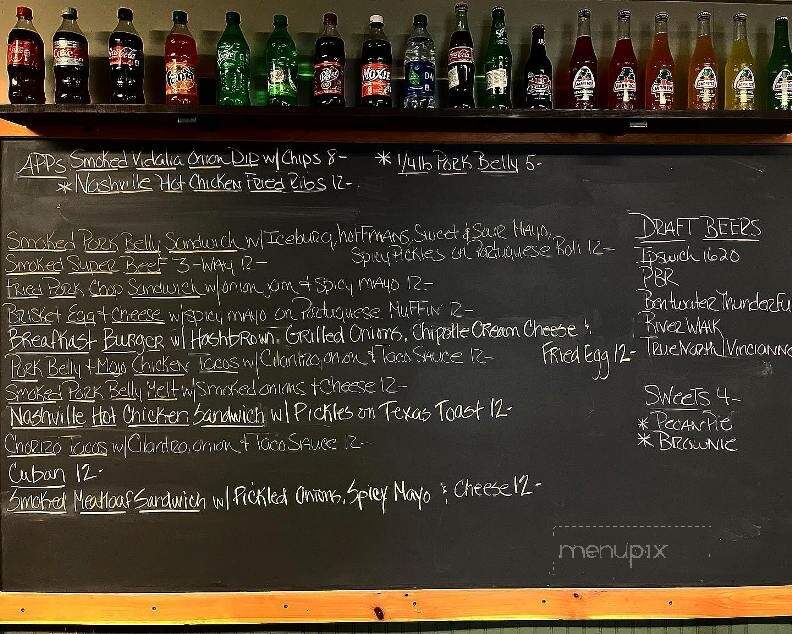 APPs Smoked Vidalia Onion Dip w/Chips 8- * 1/4lb Pork Belly 5-
* Nashville Hot Chicken Fried Ribs 12-
Smoked Pork Belly Sandwich w/Iceburg, hoffmans, Sweet & Sour Mayo,
Spicy Pickles on Portuguese Roll 12-
Smoked Super Beef 3-way 12-
Fried Pork Chop Sandwich w/onion, jam & Spicy mayo 12-
Brisket Egg & Cheese w/spicy mayo on Portuguese Muffin 12-
Breakfast Burger w/ Hashbrown, Grilled Onions, Chipotle Cream Cheese &
Fried Egg 12-
Pork Belly & Mojo Chicken Tacos w/Cilantro, onion & Taco Sauce 12-
Smoked Pork Belly Melt w/Smoked onions & Cheese 12-
Nashville Hot Chicken Sandwich w/ Pickles on Texas Toast 12-
Chorizo Tacos w/Cilantro, onion & Taco Sauce 12-
Cuban 12-
Smoked Meatloaf Sandwich w/ Pickled Onions, Spicy Mayo & Cheese 12-
DRAFT BEERS
Ipswich 1620
PBR
Bentwater Thunderfu
River Walk
True North Vincianno
Sweets 4-
* Pecan Pie
* Brownie
menupix
Coca-Cola
Moxie